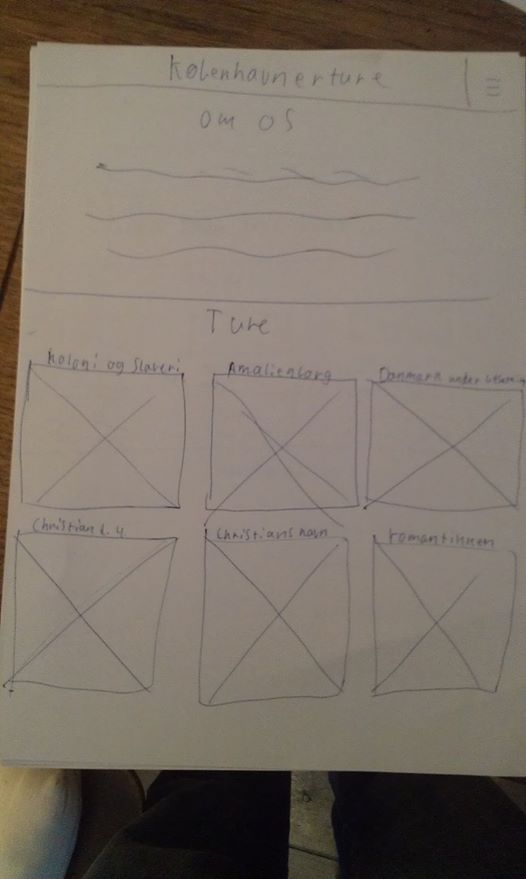 Københavnerture
om os
Ture
Koloni og Slaveri
Amalienborg
Danmark under
Christian d. 4
Christianshavn
romantikken